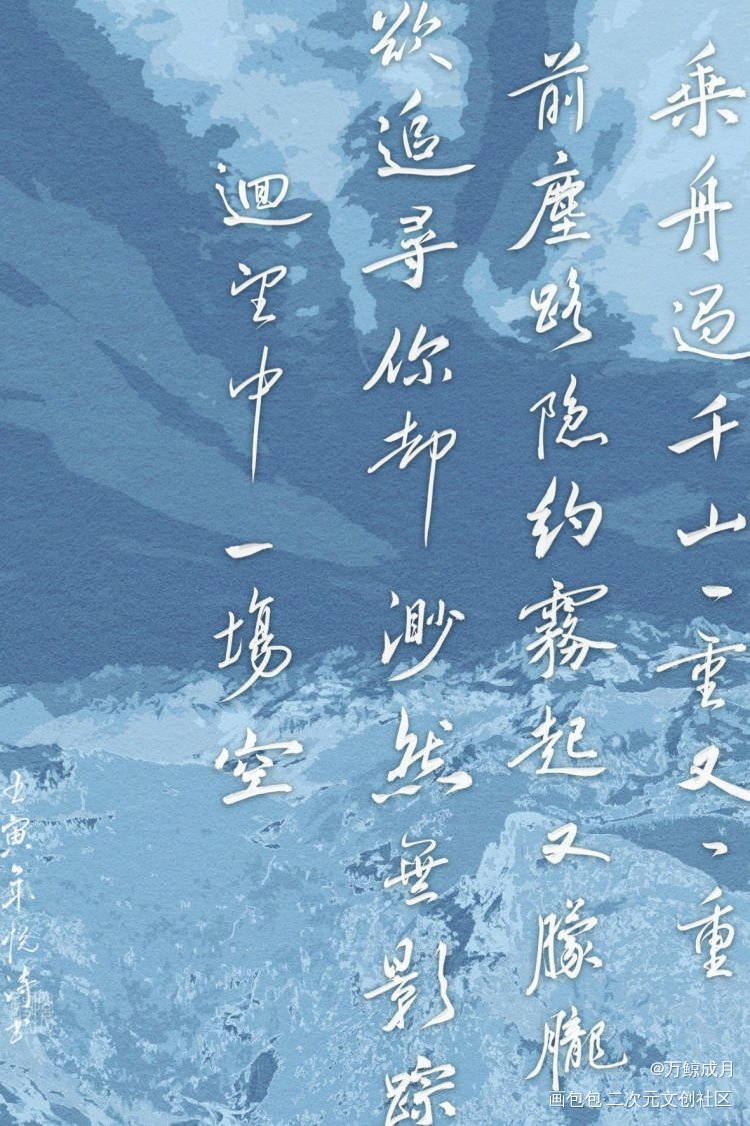 乘舟過千山一重又一重
前塵路隐約霧起又朦朧
欲追尋你却渺然無影踪
迴望中一場空
壬寅年悦涛书
@万鲸成月
画包包·二次元文创社区